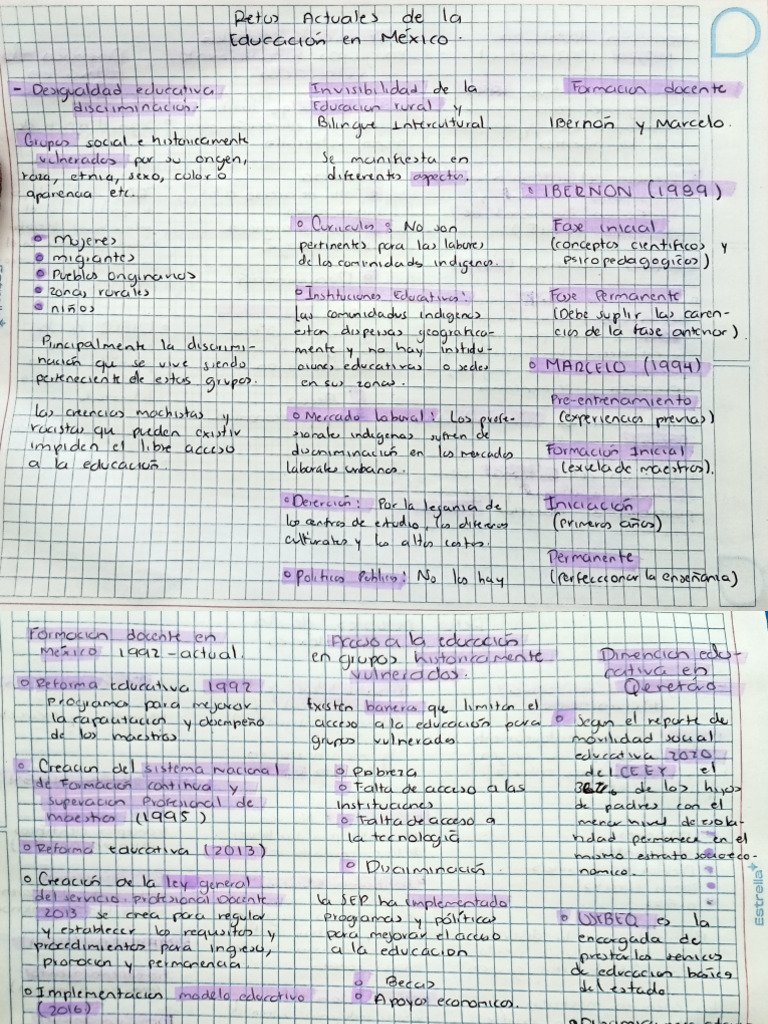 Retos Actuales de la
Educación en México.
- Desigualdad educativa
discriminación.
Grupos social e historicamente
vulnerados por su origen,
raza, etnia, sexo, color o
aparencia etc.
Mujeres
migrantes
Pueblos originarios
zonas rurales
niños
Principalmente la discrimi-
nación que se vive siendo
perteneciente de estos grupos.
Las creencias machistas y
racistas que pueden existir
impiden el libre acceso
a la educación.
Invisibilidad de la
Educacion rural y
Bilingue Intercultural.
Se manifiesta en
diferentes aspectos.
Curriculos: No son
pertinentes para las labores
de las comunidades indigenas.
Instituciones Educativas:
Las comunidades indigenas
estan dispersas geografica-
mente y no hay institu-
ciones educativas o sedes
en sus zonas.
Mercado laboral: Los profe-
sionales indigenas sufren de
discriminación en los mercados
laborales urbanos.
Deserción: Por la lejania de
los centros de estudio, las diferencias
culturales y los altos costos.
Politicas Publicas: No las hay
Formacion docente
Ibernón y Marcelo.
IBERNON (1989)
Fase inicial
(conceptos cientificos y
psicopedagogicos)
Fase Permanente
(Debe suplir las caren-
cias de la fase anterior)
MARCELO (1994)
Pre-entrenamiento
(experiencias previas)
Formación Inicial
(escuela de maestros).
Iniciación
(primeros años)
Permanente
(Perfeccionar la enseñanza)
Formacion docente en
México 1992-actual.
Reforma Educativa 1992
programa para mejorar
la capacitacion y desempeño
de los maestros.
Creacion del sistema Nacional
de Formación continua y
superacion Profesional de
maestros (1995)
Reforma Educativa (2013)
Creación de la ley general
del servicio profesional Docente
2013 se crea para regular
y establecer los requisitos y
procedimientos para ingreso,
promocion y permanencia.
Implementacion modelo educativo
(2016)
Acceso a la educación
en grupos historicamente
vulnerados.
Existen barreras que limitan el
acceso a la educación para
grupos vulnerados
Pobreza
Falta de acceso a las
Instituciones
Falta de acceso a
la tecnología
Discriminación.
La SEP ha implementado
programas y políticas
para mejorar el acceso
a la educacion
Becas
Apoyos economicos.
Dimencion edu-
cativa en
Qeretáro
Segun el reporte de
movilidad social
educativa 2020
del CEEY el
de los hijos
de padres con el
menor nivel de escola-
ridad permanece en el
mismo estrato socioeco-
nomico.
USEBEQ es la
encargada de
prestar los servicios
de educacion básica
del estado
Estrella